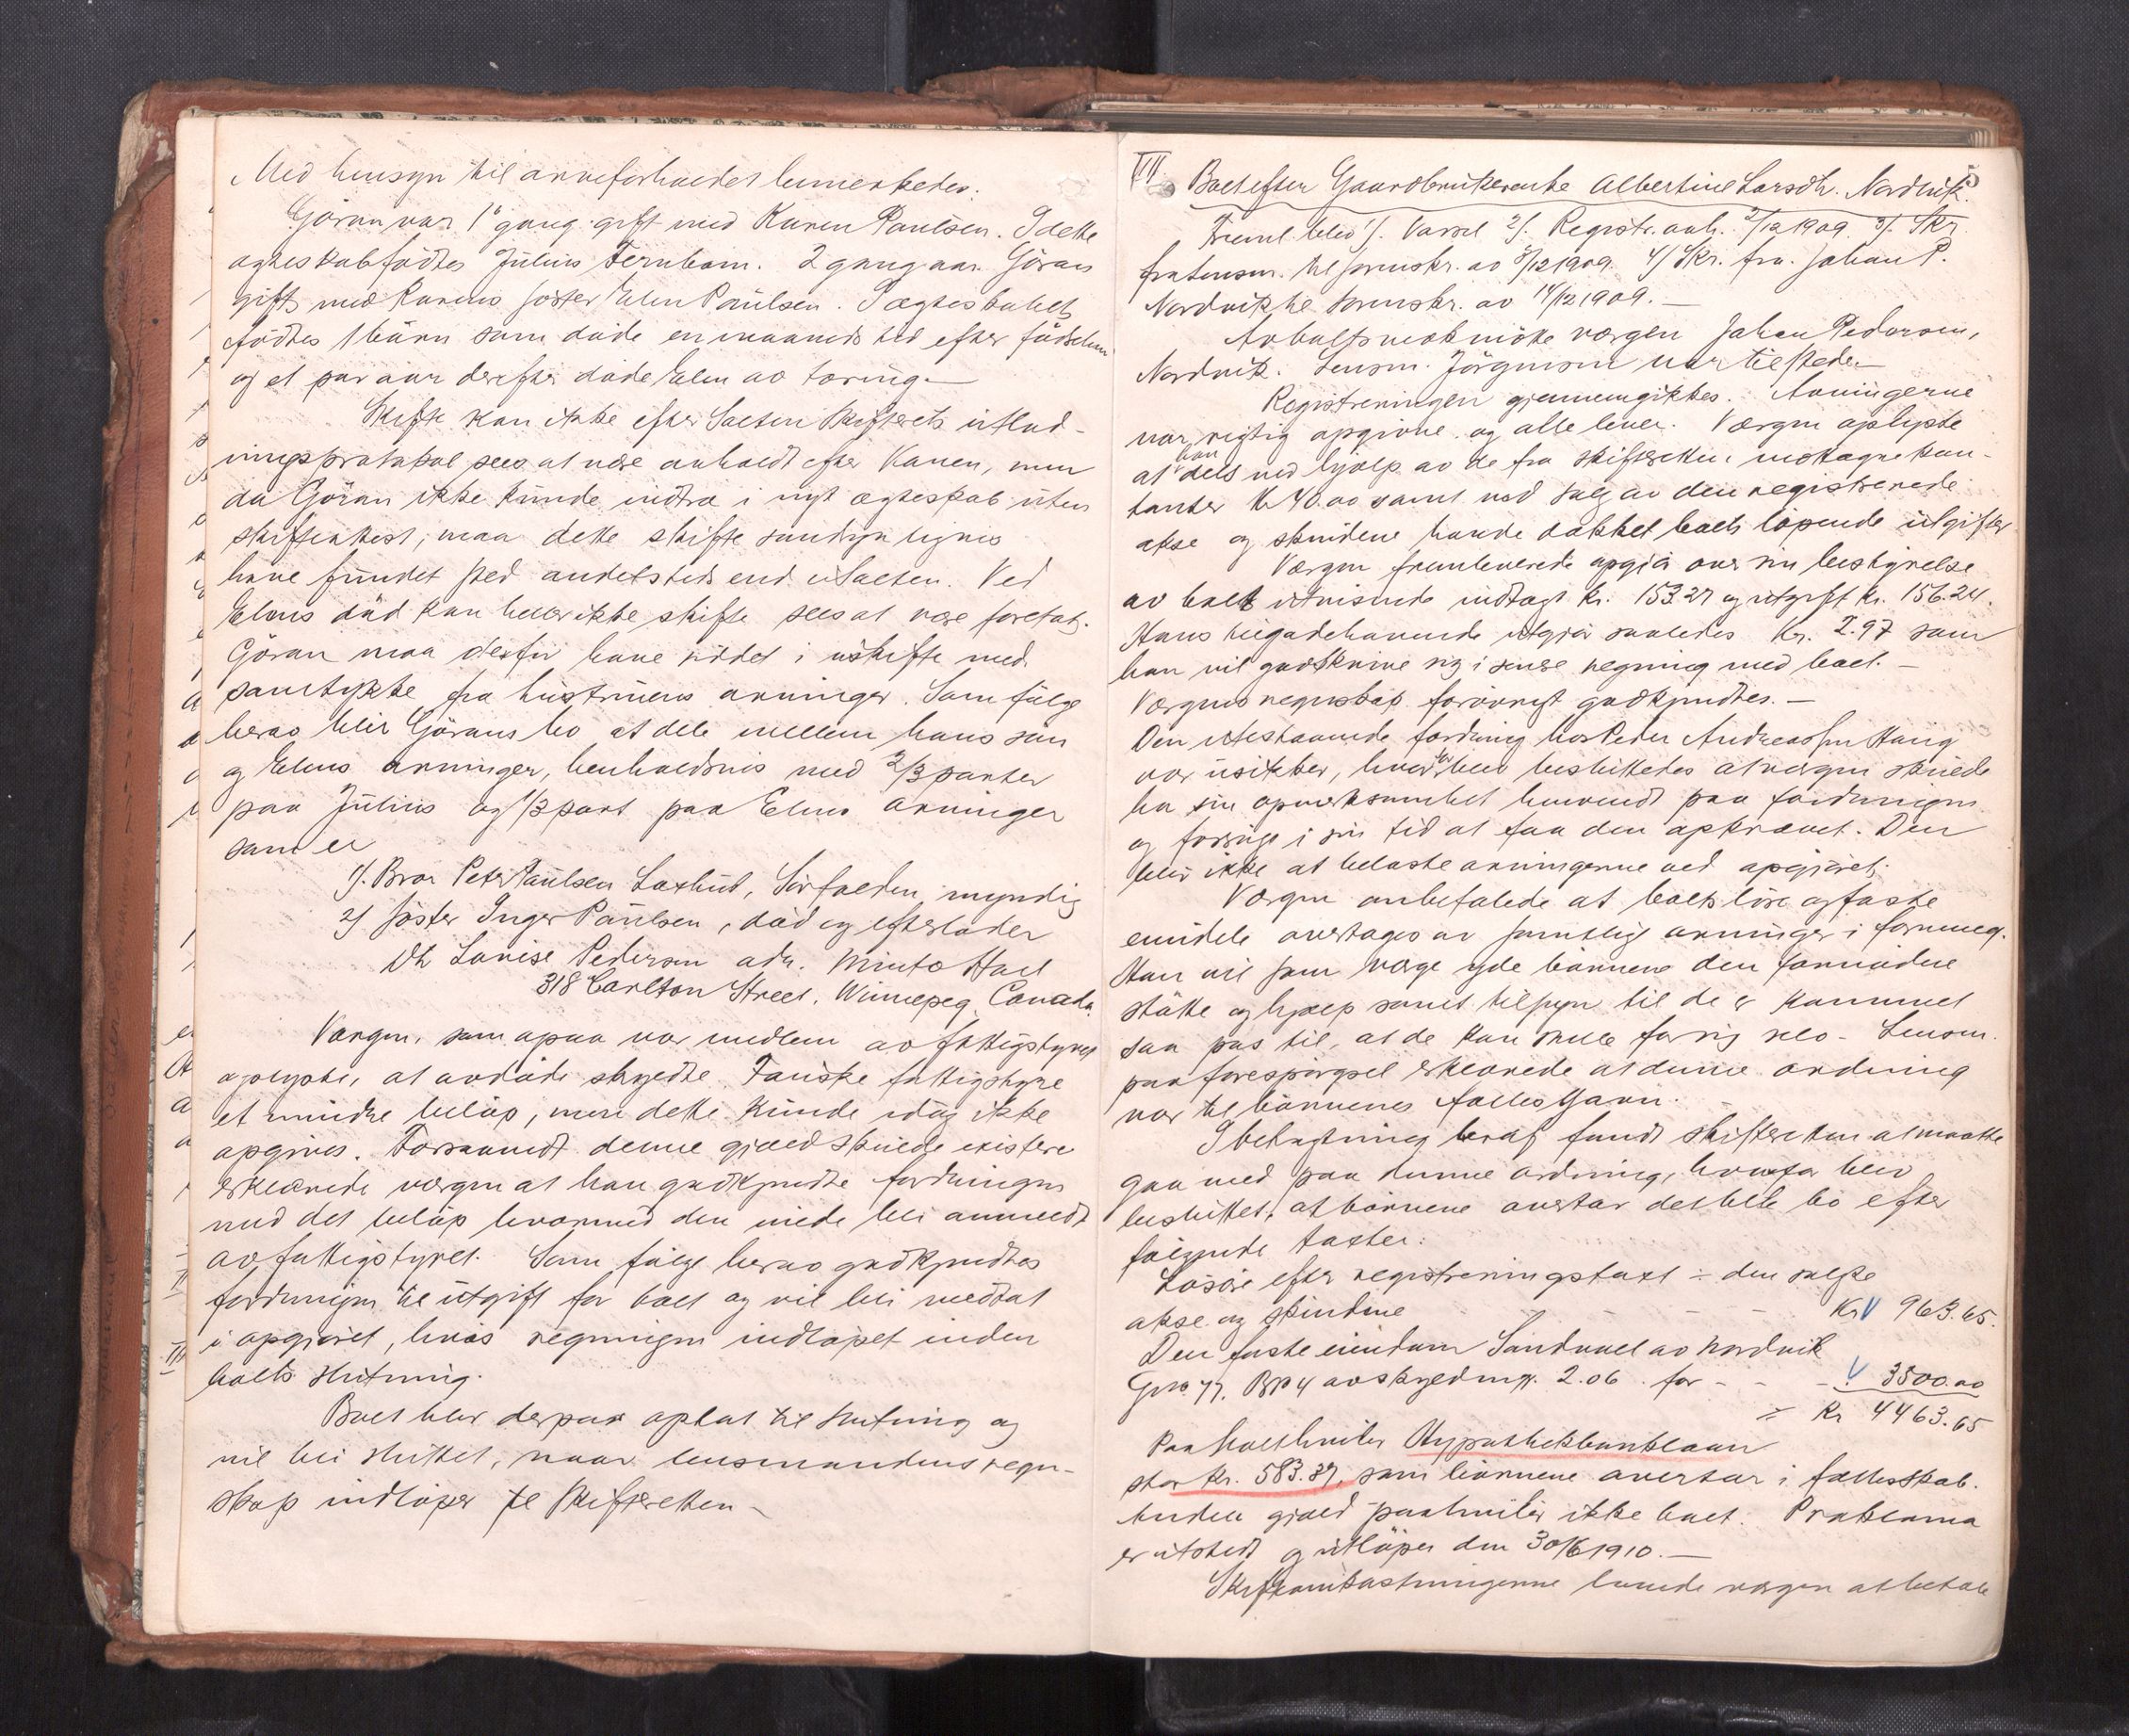 Med hensyn til arveforholdet bemerkedes:
Göran var 1ste gang gift med Karen Paulsen. I dette
egteskab fødtes Julius Fernbom. 2 gang var Göran
gift med Karens søster Elen Paulsen. I egteskabet
fødtes 1 barn som døde en maaneds tid efter fødselen
og et par aar derefter døde Elen av tæring.—
Skifte kan ikke efter Salten Skifterets utlod-
ningsprotokol sees at være avholdt efter Karen, men
da Göran ikke kunde indtræ i nyt egteskab uten
skifteattest, maa dette skifte sandsynligvis
have fundet sted andetsteds end i Salten. Ved
Elens död kan heller ikke skifte sees at være foretat.
Göran maa derfor have siddet i uskifte med
samtykke fra hustruens arvinger. Som følge
herav blir Görans bo at dele mellem hans søn
og Elens arvinger, henholdsvis med 2/3 parter
paa Julius og 1/3 part paa Elens arvinger
som er
1/. Bror Peter Paulsen Laxhul, Sørfolden, myndig
2/ søster Inger Paulsen, död og efterlader
Dtr Lovise Pedersen adr. Minto Hall
318 Carlton Street. Winnepeg Canada.
Vergen, som ogsaa var medlem av fattigstyret
oplyste, at avdøde skyldte Fauske fattigstyre
et mindre beløp, men dette kunde idag ikke
opgives. Forsaavidt denne gjæld skulde existere
erklærede vergen at han godkjendte fordringen
med det beløp hvormed den maatte bli anmeldt
av fattigstyret. Som følge herav godkjendtes
fordringen til utgift for boet og vil bli medtat
i opgjøret, hvis regningen indløpet inden
boets slutning.
Boet blev derpaa optat til slutning og
vil bli sluttet, naar lensmandens regn-
skap indløper til Skifteretten —
VII Boet efter Gaardbrukerenke Albertine Larsdtr. Nordvik. 5
Fremt. blev 1/. Varsel 2/. Registr. avh. 2/12 1909. 3/. Skr
fra lensm. til sorenskr. av 8/12 1909. 4/ Skr. fra Johan P.
Nordvik til sorenskr. av 14/12 1909.—
Av boets vedk. møtte vergen Johan Pedersen,
Nordvik. Lensm. Jörgensen var tilstede.—
Registreringen gjennemgikkes. Arvingerne
var rigtig opgivne og alle lever. Værgen oplyste
at han dels ved hjælp av de fra skifteretten mottagne kon-
tanter kr 40.00 samt ved salg av den registrerede
okse og skindene havde dækket boets løpende utgifter
Værgen fremleverede opgjör over sin bestyrelse
av boet utvisende indtægt kr. 153.27 og utgift kr. 156.24.
Hans tilgodehavende utgjör saaledes Kr. 2.97 som
han vil godtskrive sig i senere regning med boet.—
Værgens regnskap forøvrigt godkjendtes.—
Den utestaaende fordring hos Peder Andreassen Haug
var usikker, hvorfor blev besluttedes at vergen skulde
ha sin opmerksomhet henvendt paa fordringen
og forsøge i sin tid at faa den opkrævet. Den
blir ikke at belaste arvingerne ved opgjøret.
Værgen anbefalede at boets löse og faste
eiendele overtages av samtlige arvinger i fellesskap.
Han vil som værge yde børnene den fornødne
støtte og hjælp samt tilsyn til de er kommet
saa pas til, at de kan stelle for sig selv. Lensm.
paa forespørgsel erklærede at denne ordning
var til børnenes fælles gavn.
I betragtning heraf fandt skifteretten at maatte
gaa med paa denne ordning, hvorfor blev
besluttet, at børnene overtar det hele bo efter
følgende takster:
Løsøre efter registreringstaxt ÷ den solgte
okse og skindene - - - Kr 963.65.
Den faste eiendom Sandvoll av Nordvik
Gno 77. Bno 4 av skyldm. 2.06 for - - - 3500.00
= Kr 4463.65
Paa boet hviler Hypothekbanklaan
stor kr. 583.37, som børnene overtar i fællesskab.
Anden gjæld paahviler ikke boet. Proklama
er utstedt og utløper den 30/6 1910.—
Skifteomkostningerne havde vergen at betale